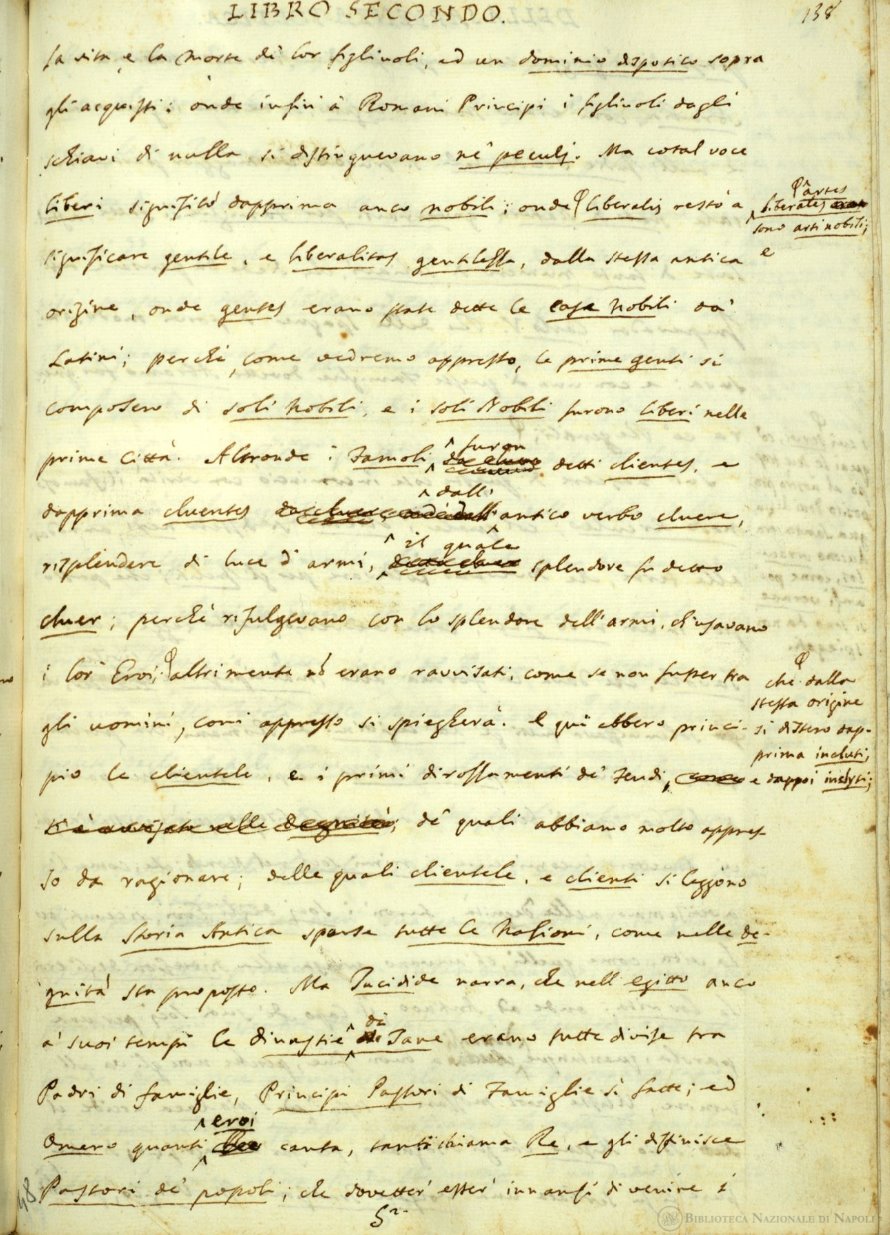 LIBRO SECONDO.
138
la vita, e la morte di lor figliuoli, ed un dominio dispotico sopra
gli acquisti: onde infin' à Romani Principi i figliuoli dagli
schiavi di nulla si distinguevano ne' peculj. Ma cotal voce
liberi significò dapprima anco nobili; onde liberalis restò a
artes
liberales
sono arti nobili;
e
significare gentile, e liberalitas gentilezza, dalla stessa antica
origine, onde gentes erano state dette le case nobili da'
Latini; perchè, come vedremo appresso, le prime genti si
composero di soli nobili, e i soli Nobili furono liberi nelle
prime Città. Altronde i Famoli furon detti clientes, e
dapprima cluentes dall' antico verbo cluere,
risplendere di luce d'armi, il quale splendore fu detto
cluer; perchè rifulgevano con lo splendore dell'armi, ch'usavano
i lor' Eroi; altrimente nō erano ravvisati, come se non fusser tra
che dalla
stessa origine
si dissero dap-
prima incluti,
e dappoi inclyti;
gli uomini, com' appresso si spiegherà. E quì ebbero princi-
pio le clientele, e i primi dirossamenti de' Feudi,
de' quali abbiamo molto appres-
so da ragionare; delle quali clientele, e clienti si leggono
sulla Storia Antica sparse tutte le Nazioni, come nelle de-
gnità sta proposto. Ma Tucidide narra, che nell'egitto anco
a' suoi tempi le dinastie di Tane erano tutte divise tra
Padri di famiglie, Principi Pastori di Famiglie sì fatte; ed
Omero quanti eroi canta, tanti chiama Re, e gli diffinisce
Pastori de' popoli; che dovetter' esser' innanzi di venire i
BIBLIOTECA NAZIONALE DI NAPOLI